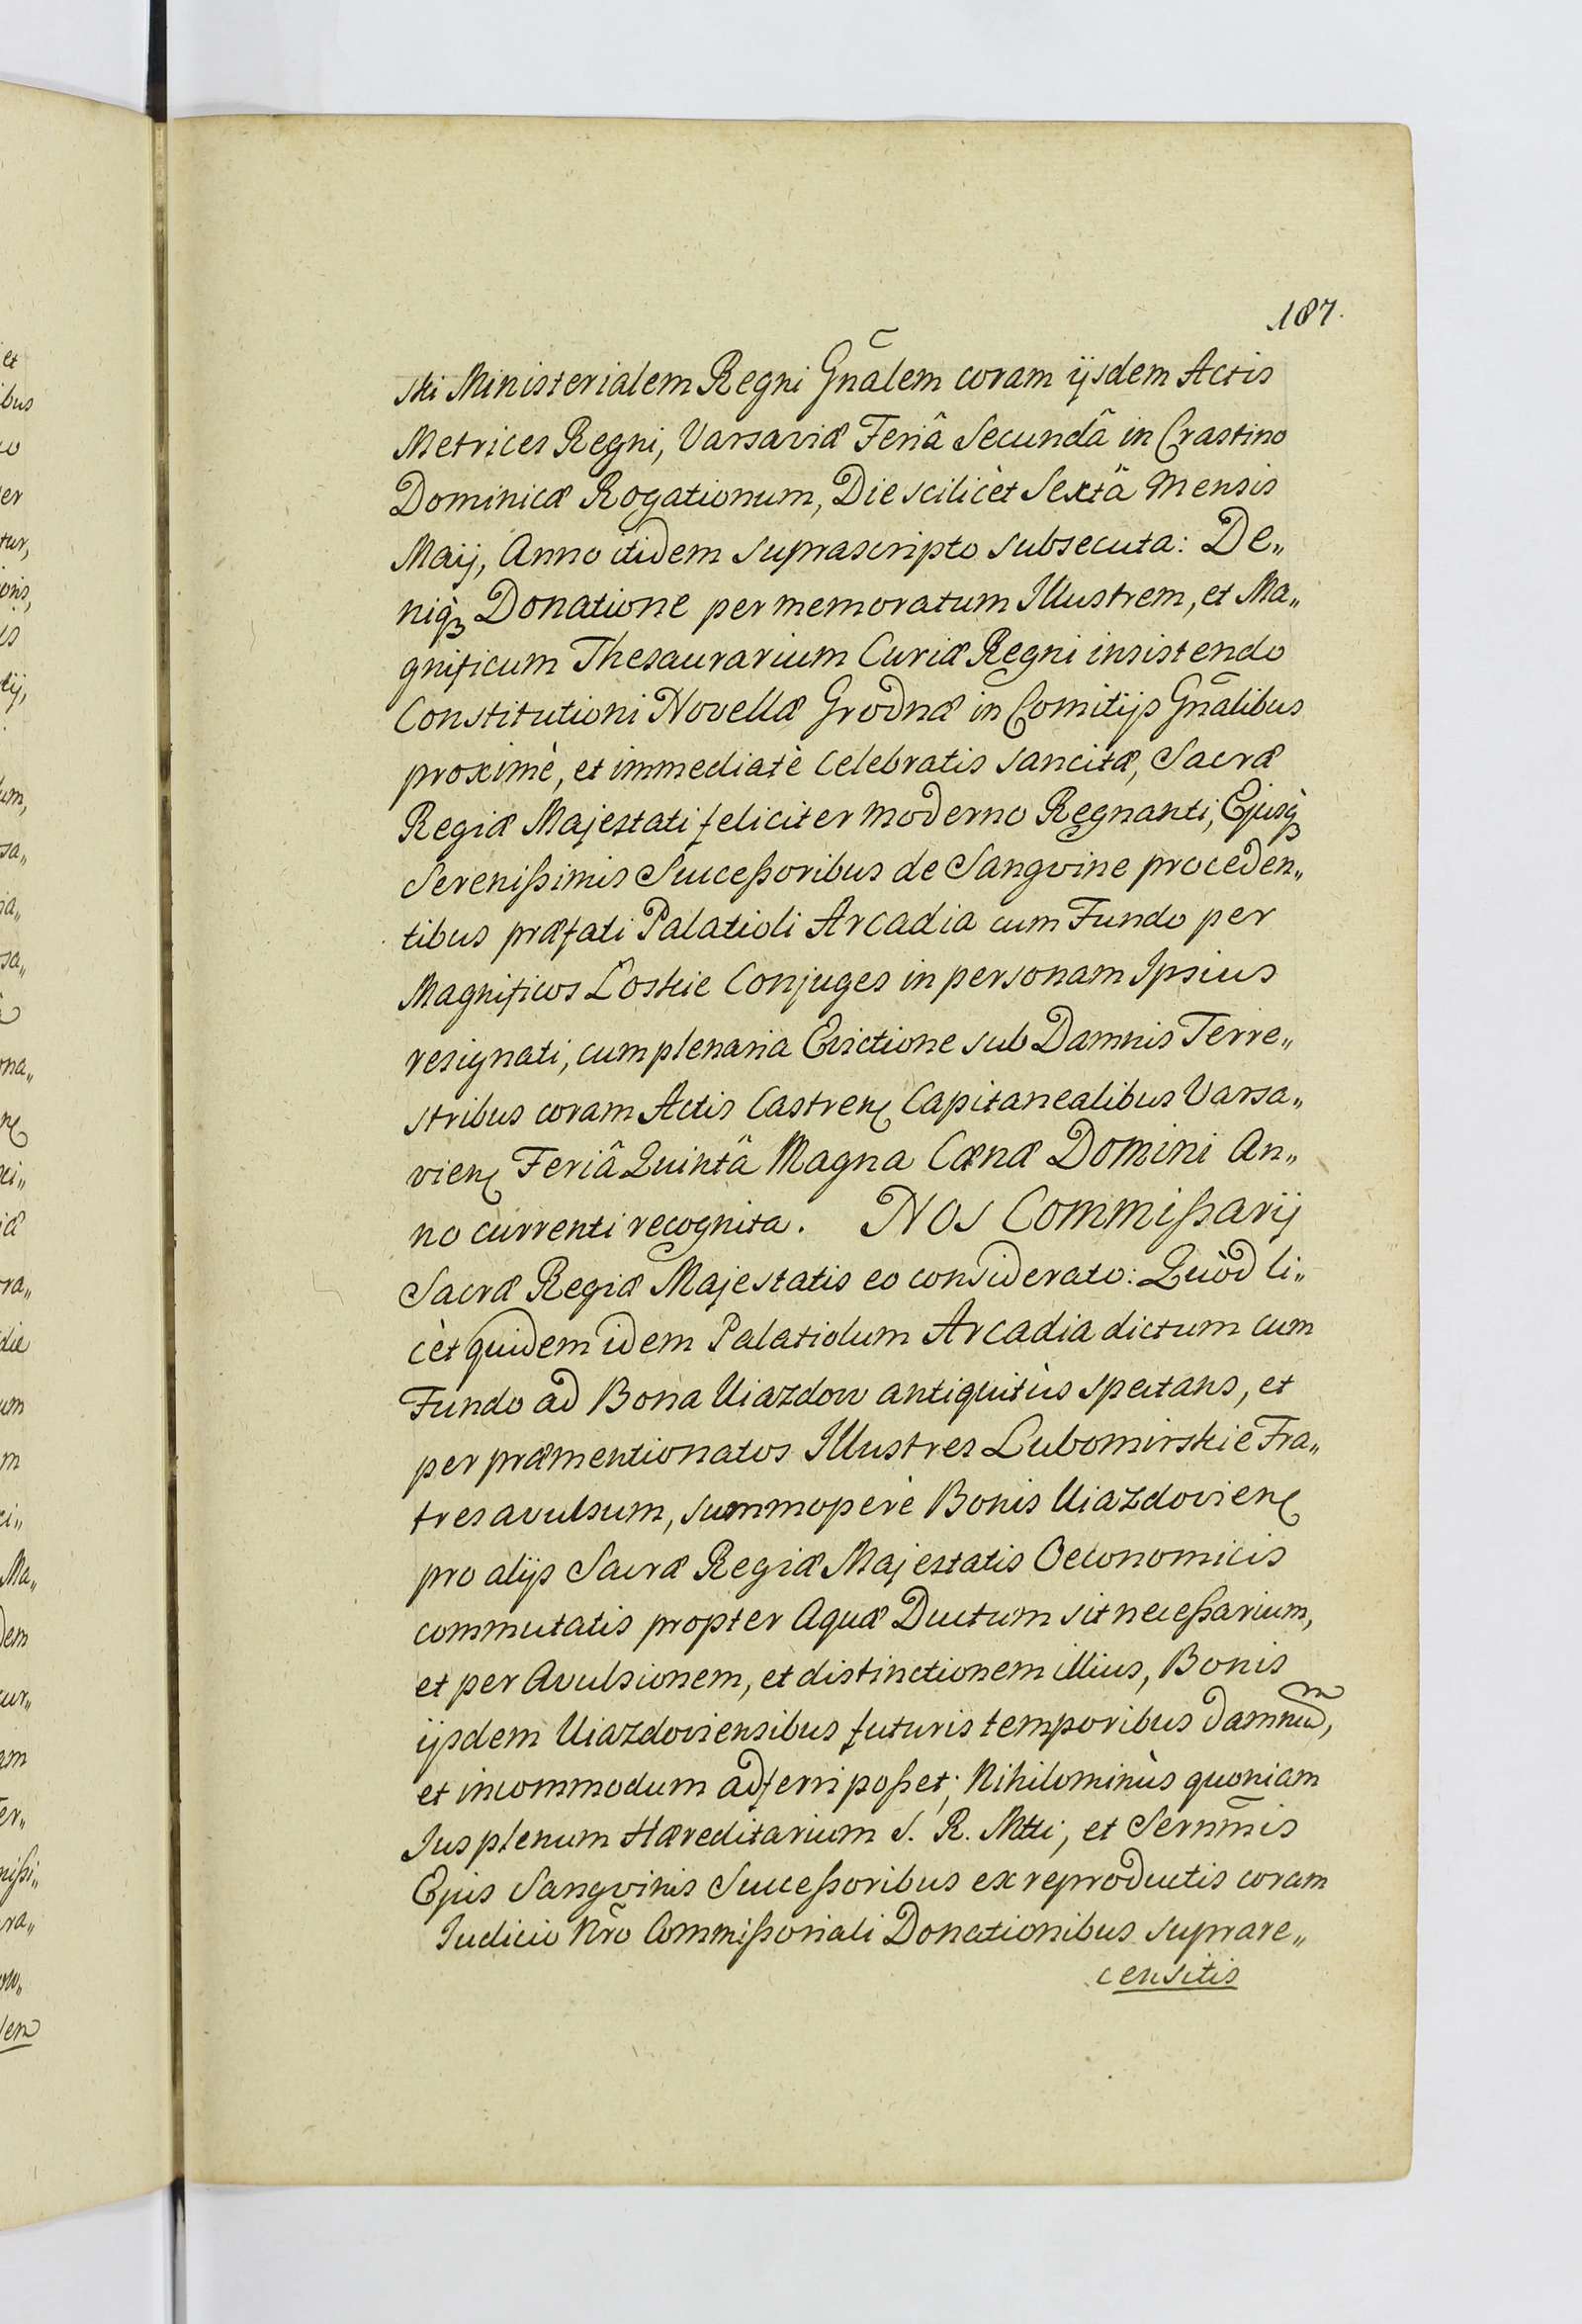 187.
ski Ministerialem Regni Gnãlem coram ijsdem Actis
Metrices Regni, Varsaviæ Feriâ Secundâ in Crastino
Dominicæ Rogationum, Die scilicèt Sextâ Mensis
Maij, Anno itidem suprascripto subsecuta: De„
niq̀ꝫ Donatione per memoratum Illustrem, et Ma„
gnificum Thesaurarium Curiæ Regni insistendo
Constitutioni Novellæ Grodnæ in Comitijs Gnãlibus
proximè, et immediatè celebratis sancitæ, Sacræ
Regiæ Majestati feliciter moderno Regnanti, Ejusq̀ꝫ
Serenißimis Succeßoribus de Sangvine proceden„
tibus præfati Palatioli Arcadia cum Fundo per
Magnificos Łoskie Conjuges in personam Ipsius
resignati, cum plenaria Evictione sub Damnis Terre„
stribus coram Actis Castren Capitanealibus Varsa„
vien Feriâ Quintâ Magna Cænæ Domini An„
no currenti recognita. Nos Commißarij
Sacræ Regiæ Majestatis eo considerato: Quòd li„
cèt quidem idem Palatiolum Arcadia dictum cum
Fundo ad Bona Uiazdow antiquitùs spectans, et
per præmentionatos Illustres Lubomirskie Fra„
tres avulsum, summoperè Bonis Uiazdovien
pro alijs Sacræ Regiæ Majestatis Oeconomicis
commutatis propter Aquæ Ductum sit neceßarium,
et per Avulsionem, et distinctionem illius, Bonis
ijsdem Uiazdoviensibus futuris temporibus damnũ,
et incommodum adferri poßet; Nihilominùs quoniam
Jus plenum Hæreditarium S. R. Mtti, et Sernm̃is
Ejus Sangvinis Succeßoribus ex reproductis coram
Judicio Nrõ Commißoriali Donationibus suprare„
censitis
et
ibus
er
tur,
onis,
is
tij,
um,
sa„
ia„
sa„
ona„
ra„
die
um
m
Ma„
dem
cur„
am
er„
nißi„
ra„